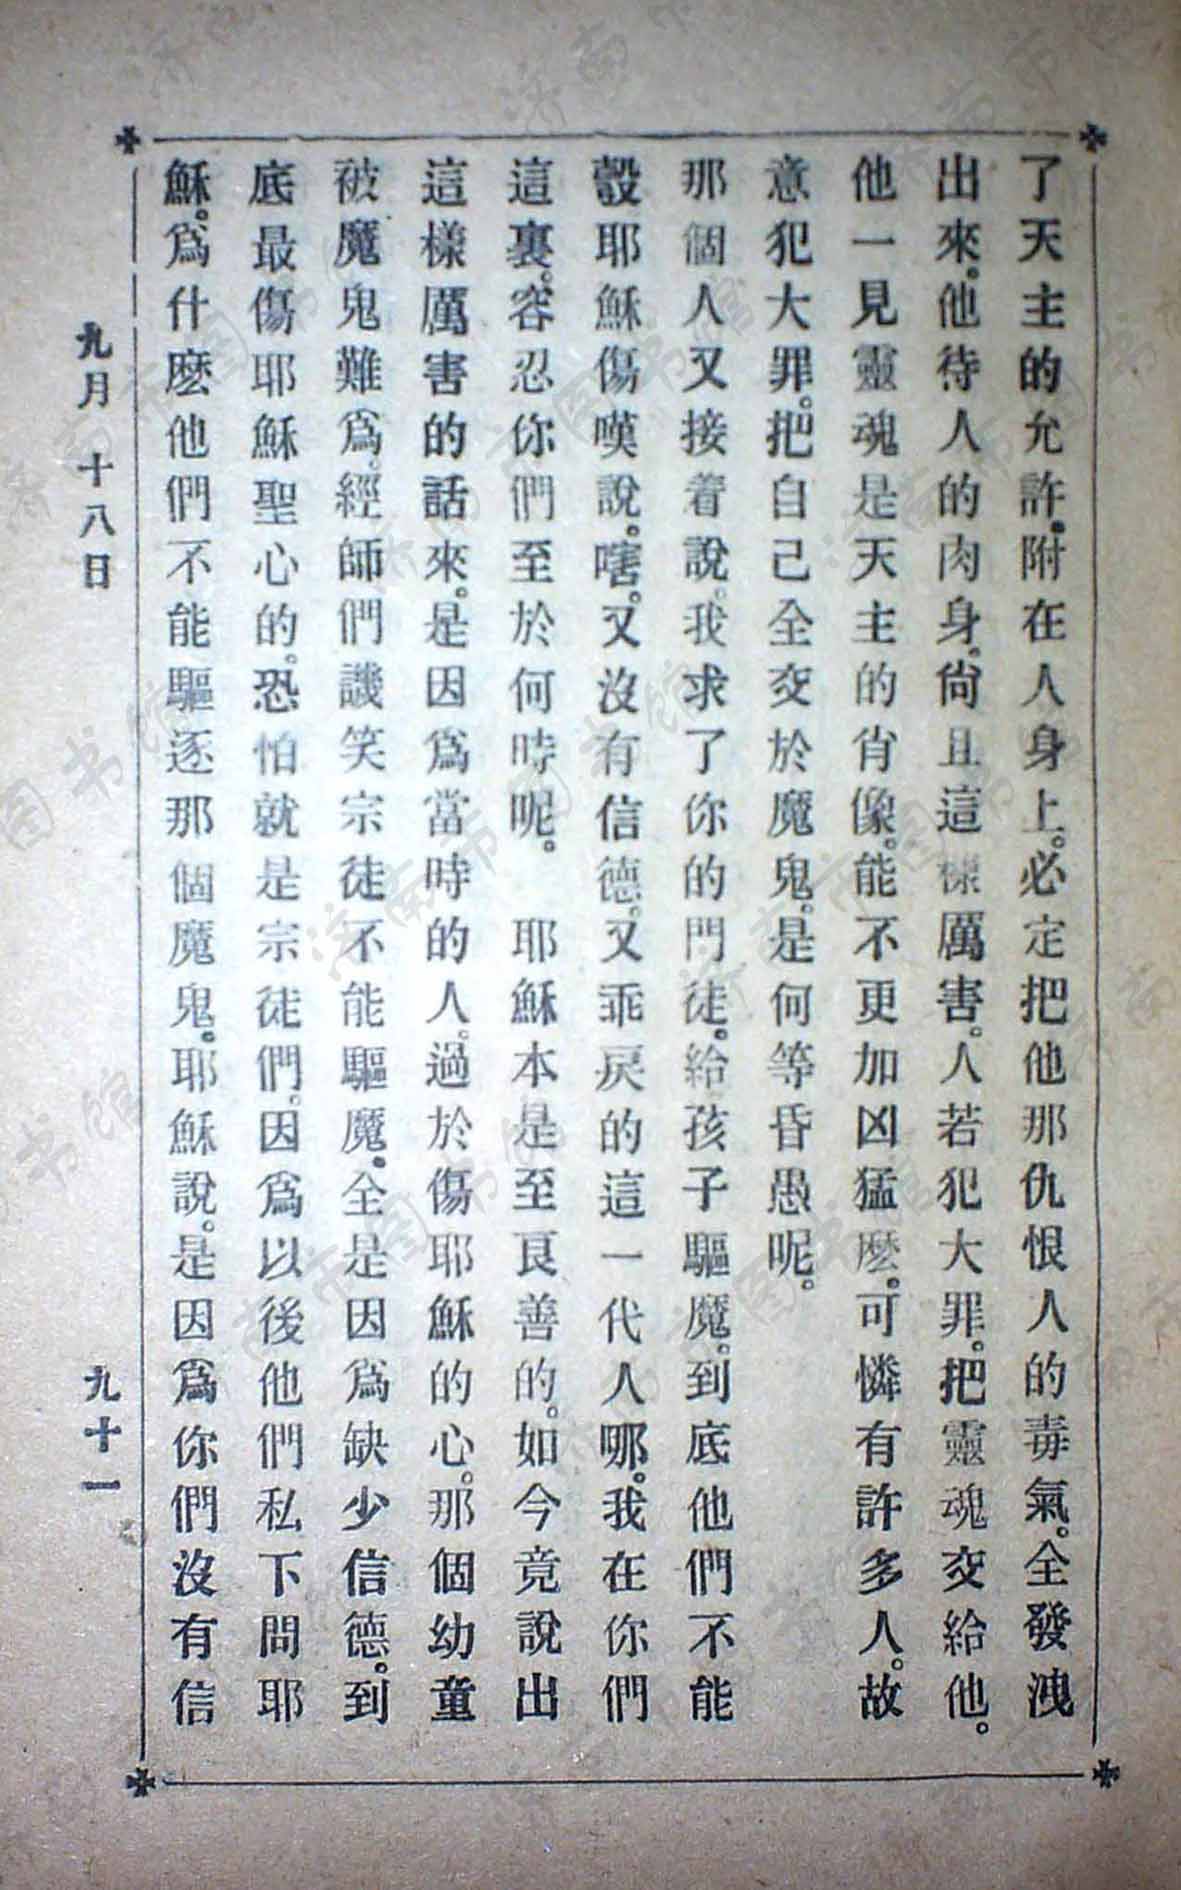 了天主的允許。附在人身上。必定把他那仇恨人的毒氣。全發洩
出來。他待人的肉身。尙且這樣厲害。人若犯大罪。把靈魂交給他。
他一見靈魂是天主的肖像。能不更加凶猛麽。可憐有許多人。故
意犯大罪。把自己全交於魔鬼。是何等昏愚呢。
那個人又接着說。我求了你的門徒。給孩子驅魔。到底他們不能
彀耶穌傷嘆說。嗐。又沒有信德。又乖戾的這一代人哪。我在你們
這裏。容忍你們至於何時呢。　耶穌本是至良善的。如今竟說出
這樣厲害的話來。是因爲當時的人。過於傷耶穌的心。那個幼童
被魔鬼難爲。經師們譏笑宗徒不能驅魔。全是因爲缺少信德。到
底最傷耶穌聖心的。恐怕就是宗徒們。因爲以後他們私下問耶
穌。爲什麽他們不能驅逐那個魔鬼。耶穌說。是因爲你們沒有信
九月十八日
九十一
济南市图书馆